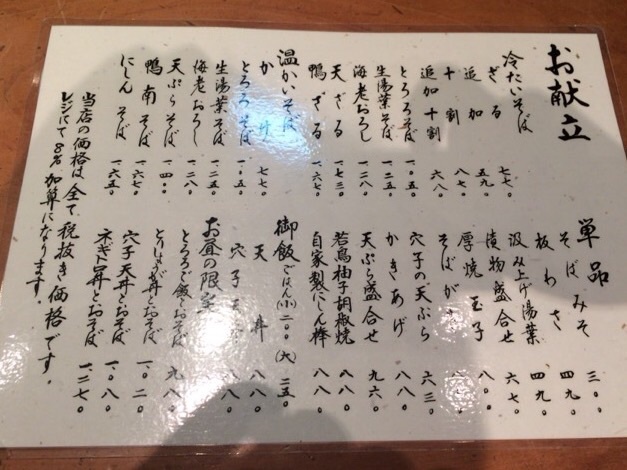 お献立
冷たいそば
ざる 七七〇
追加 五九〇
十割 八七〇
追加十割 六八〇
とろろそば 一、〇五〇
生湯葉そば 一、二五〇
海老おろし 一、二八〇
天ざる 一、七三〇
鴨ざる 一、六七〇
温かいそば
か 七七〇
とろろそば 一、〇五〇
生湯葉そば 一、二五〇
海老おろし 一、二八〇
天ぷらそば 一、四〇〇
鴨南そば 一、六七〇
にしんそば 一、六五〇
当店の価格は全て税抜き価格です。
レジにて8%加算になります。
単品
そばみそ 三〇〇
板わさ 四九〇
汲み上げ湯葉 四九〇
漬物盛合せ 六七〇
厚焼玉子 八〇〇
そばが
穴子の天ぷら 六三〇
かきあげ 八八〇
天ぷら盛合せ 九六〇
若鳥柚子胡椒焼 八八〇
自家製にしん棒 八八〇
御飯 ごはん(小)二〇〇 (大)二五〇
天丼 八八〇
穴子 八八〇
お昼の限定
とろろご飯とおそば 九八〇
とりしょうが丼とおそば 一、〇二〇
穴子天丼とおそば 一、〇八〇
ネギトロ丼とおそば 一、二七〇